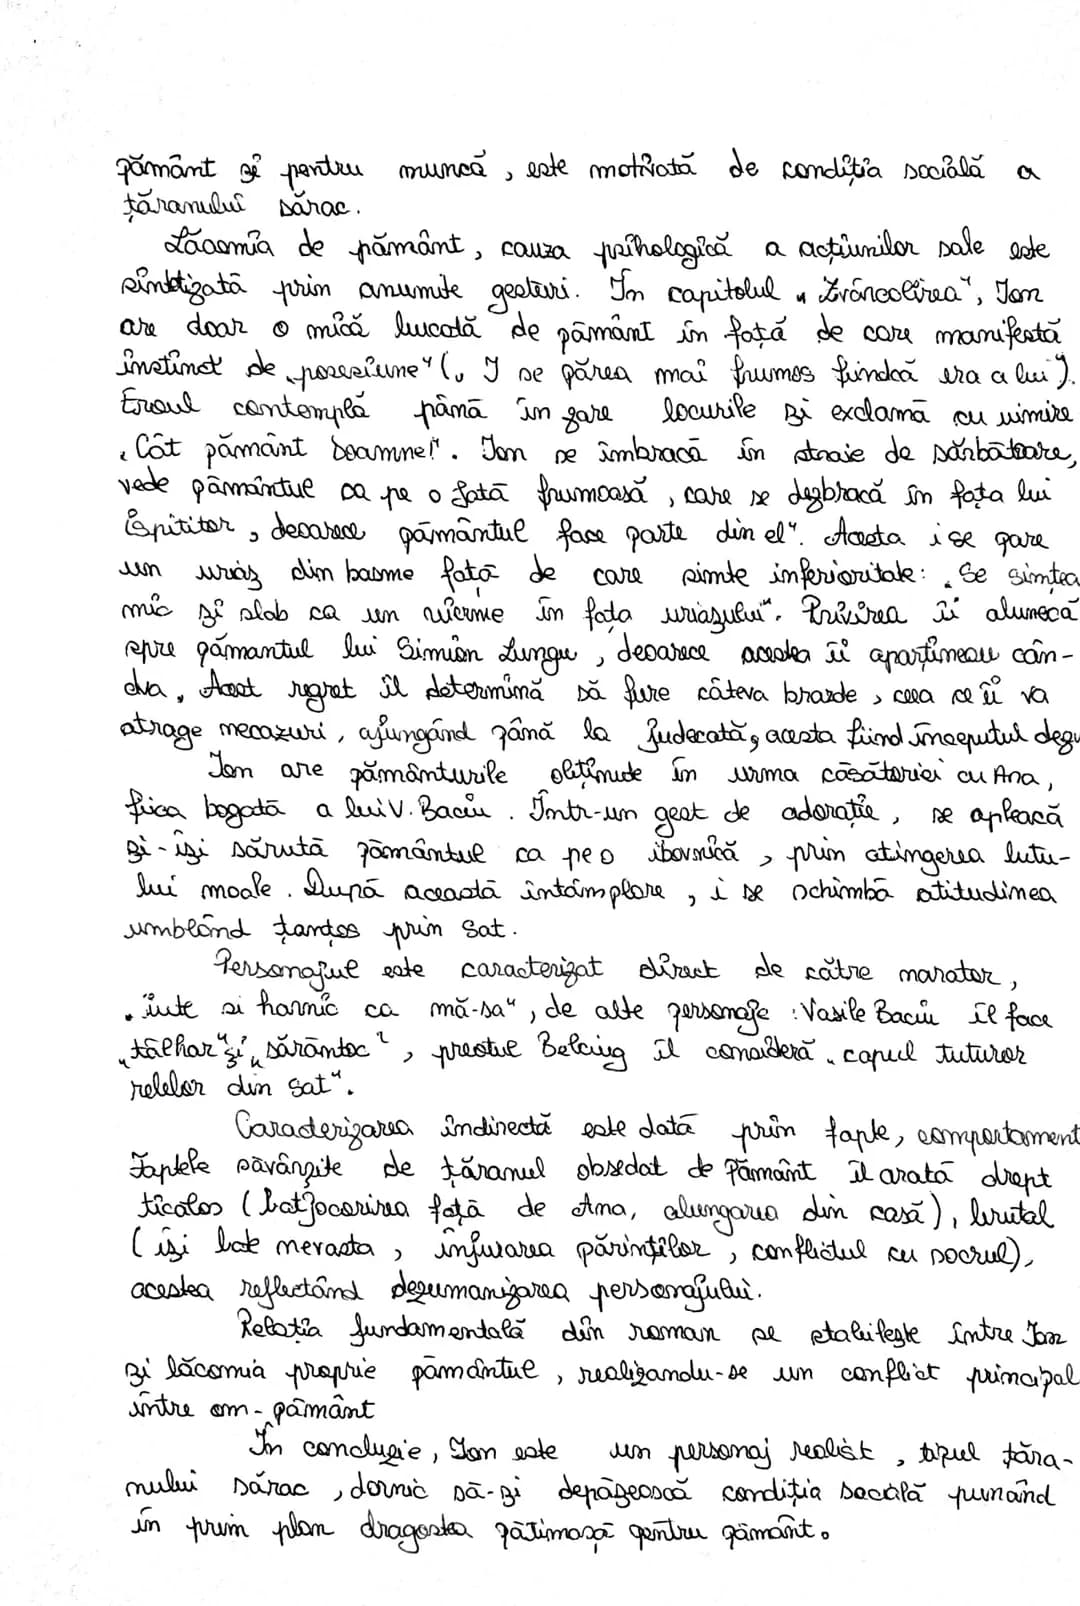 pământ și pentru muncă, este motivată de condiția socială a
țăranului sărac.
Lăcomia de pământ, cauza psihologică a acțiunilor sale este
sintetizată prin anumite gesturi. În capitolul „Zvârcolirea", Ion
are doar o mică bucată de pământ în față de care manifestă
instinct de „posesiune" („I se părea mai frumos fiindcă era a lui").
Eroul contemplă până în zare locurile și exclamă cu uimire
„Cât pământ Doamne!". Ion se îmbracă în straie de sărbătoare,
vede pământul ca pe o fată frumoasă, care se dezbracă în fața lui
Ispititor, deoarece pământul face parte din el". Acesta i se pare
un uriaș din basme față de care simte inferioritate: „Se simțea
mic și slab ca un vierme în fața uriașului". Privirea îi alunecă
spre pământul lui Simion Lungu, deoarece acestea îi aparțineau cân-
dva. Acest regret îl determină să fure câteva brazde, ceea ce îi va
atrage necazuri, ajungând până la judecată, acesta fiind începutul dezu
Ion are pământurile obținute în urma căsătoriei cu Ana,
fiica bogată a lui V. Baciu. Într-un gest de adorație, se apleacă
și-și sărută pământul ca pe o ibovnică, prin atingerea lutu-
lui moale. După această întâmplare, i se schimbă atitudinea
umblând țanțos prin sat.
Personajul este caracterizat direct de către narator,
„iute si harnic ca mă-sa", de alte personaje: Vasile Baciu îl face
„tâlhar" și „sărântoc", preotul Belciug îl consideră „capul tuturor
relelor din sat".
Caracterizarea indirectă este dată prin fapte, comportament
Faptele săvârșite de țăranul obsedat de Pământ îl arată drept
ticălos (batjocorirea față de Ana, alungarea din casă), brutal
(își bate nevasta, înfuiarea părinților, conflictul cu socrul),
acestea reflectând dezumanizarea personajului.
Relația fundamentală din roman se stabilește între Ion
și lăcomia proprie pământul, realizandu-se un conflict principal
între om - pământ
În concluzie, Ion este un personaj realist, tipul țăra-
nului sărac, dornic să-și depășească condiția socială punând
în prim plan dragostea pătimașă pentru pământ.